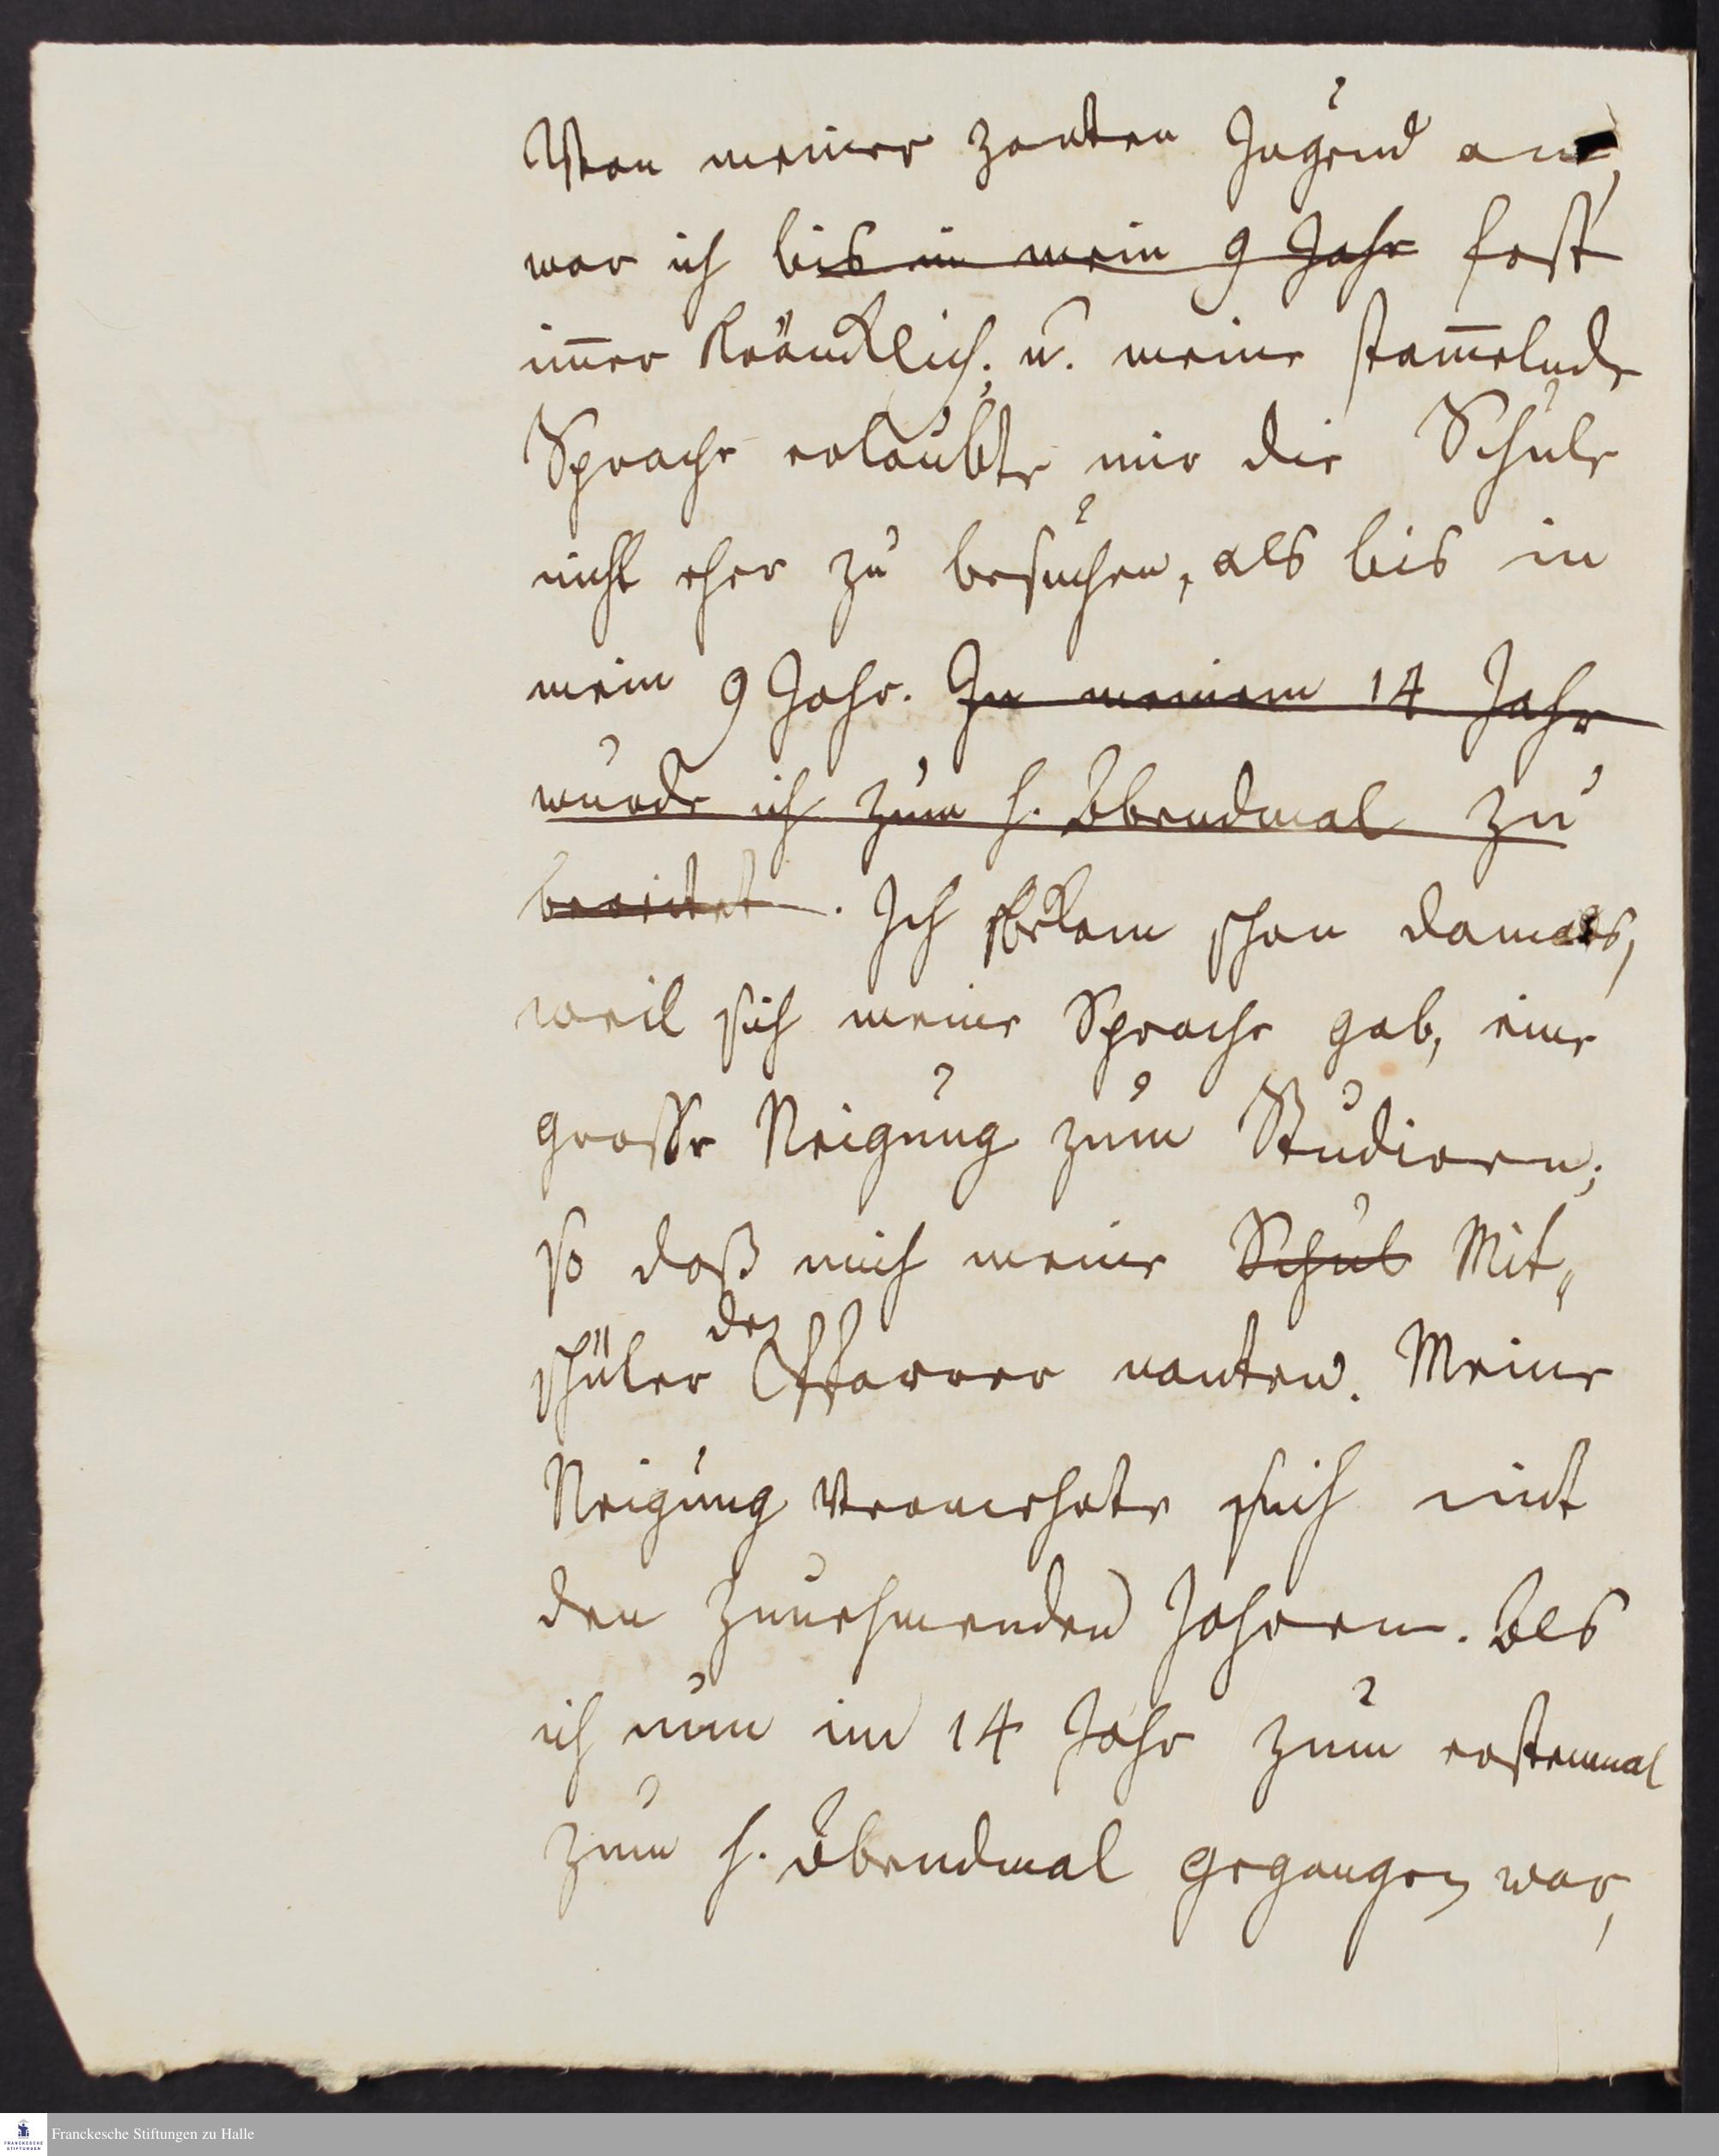 Von meiner zarten Jugend an,
war ich bis in mein 9 Jahr fast
im̅er kräncklich; u. meine stam̅elnde
Sprache erlaubte mir die Schule
nicht eher zu besuchen, als bis in
mein 9 Jahr. In meinem 14 Jahr
wurde ich zum h. Abendmal zu
bereitet. Ich bekam schon damals,
weil sich meine Sprache gab, eine
grosse Neigung zum Studieren;
so daß mich meine Schul Mit„
den
schüler Pfarrer nanten. Meine
Neigung vermehrte sich mit
den zunehmenden Jahren. Als
ich nun im 14 Jahr zum erstenmal
zum h. Abendmal gegangen war,
Franckesche Stiftungen zu Halle
FRANCKESCHE
STIFTUNGEN